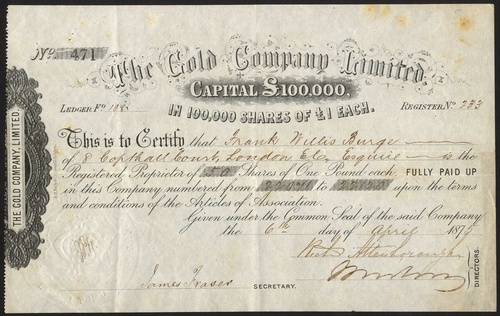 No. 471
The Gold Company Limited.
CAPITAL £100,000.
IN 100,000 SHARES OF £1 EACH.
LEDGER Fo.
REGISTER No. 233
This is to Certify that Frank Willis Burge
of 8 Copthall Court, London Esquire is the
Registered Proprietor of Shares of One Pound each FULLY PAID UP
in this Company numbered from to upon the terms
and conditions of the Articles of Association.
Given under the Common Seal of the said Company
the 6th day of April 187
Attenborough
James Fraser SECRETARY.
DIRECTORS.
THE GOLD COMPANY, LIMITED.